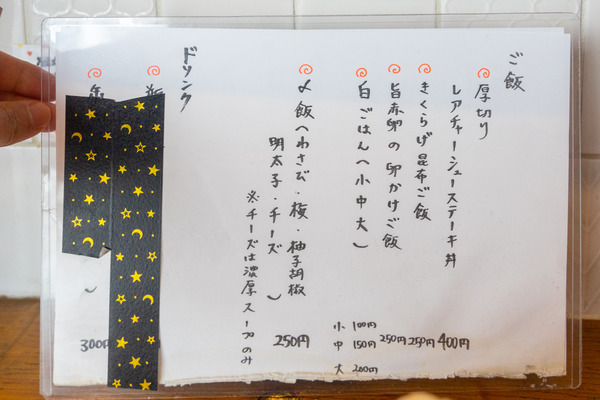 ご飯
厚切り
レアチャーシューステーキ丼 400円
きくらげ昆布ご飯 250円
旨赤卵の卵かけご飯 250円
白ごはん(小中大)
小 100円
中 150円
大 200円
〆飯(わさび・梅・柚子胡椒
明太子・チーズ) 250円
※チーズは濃厚スープのみ
ドリンク
300